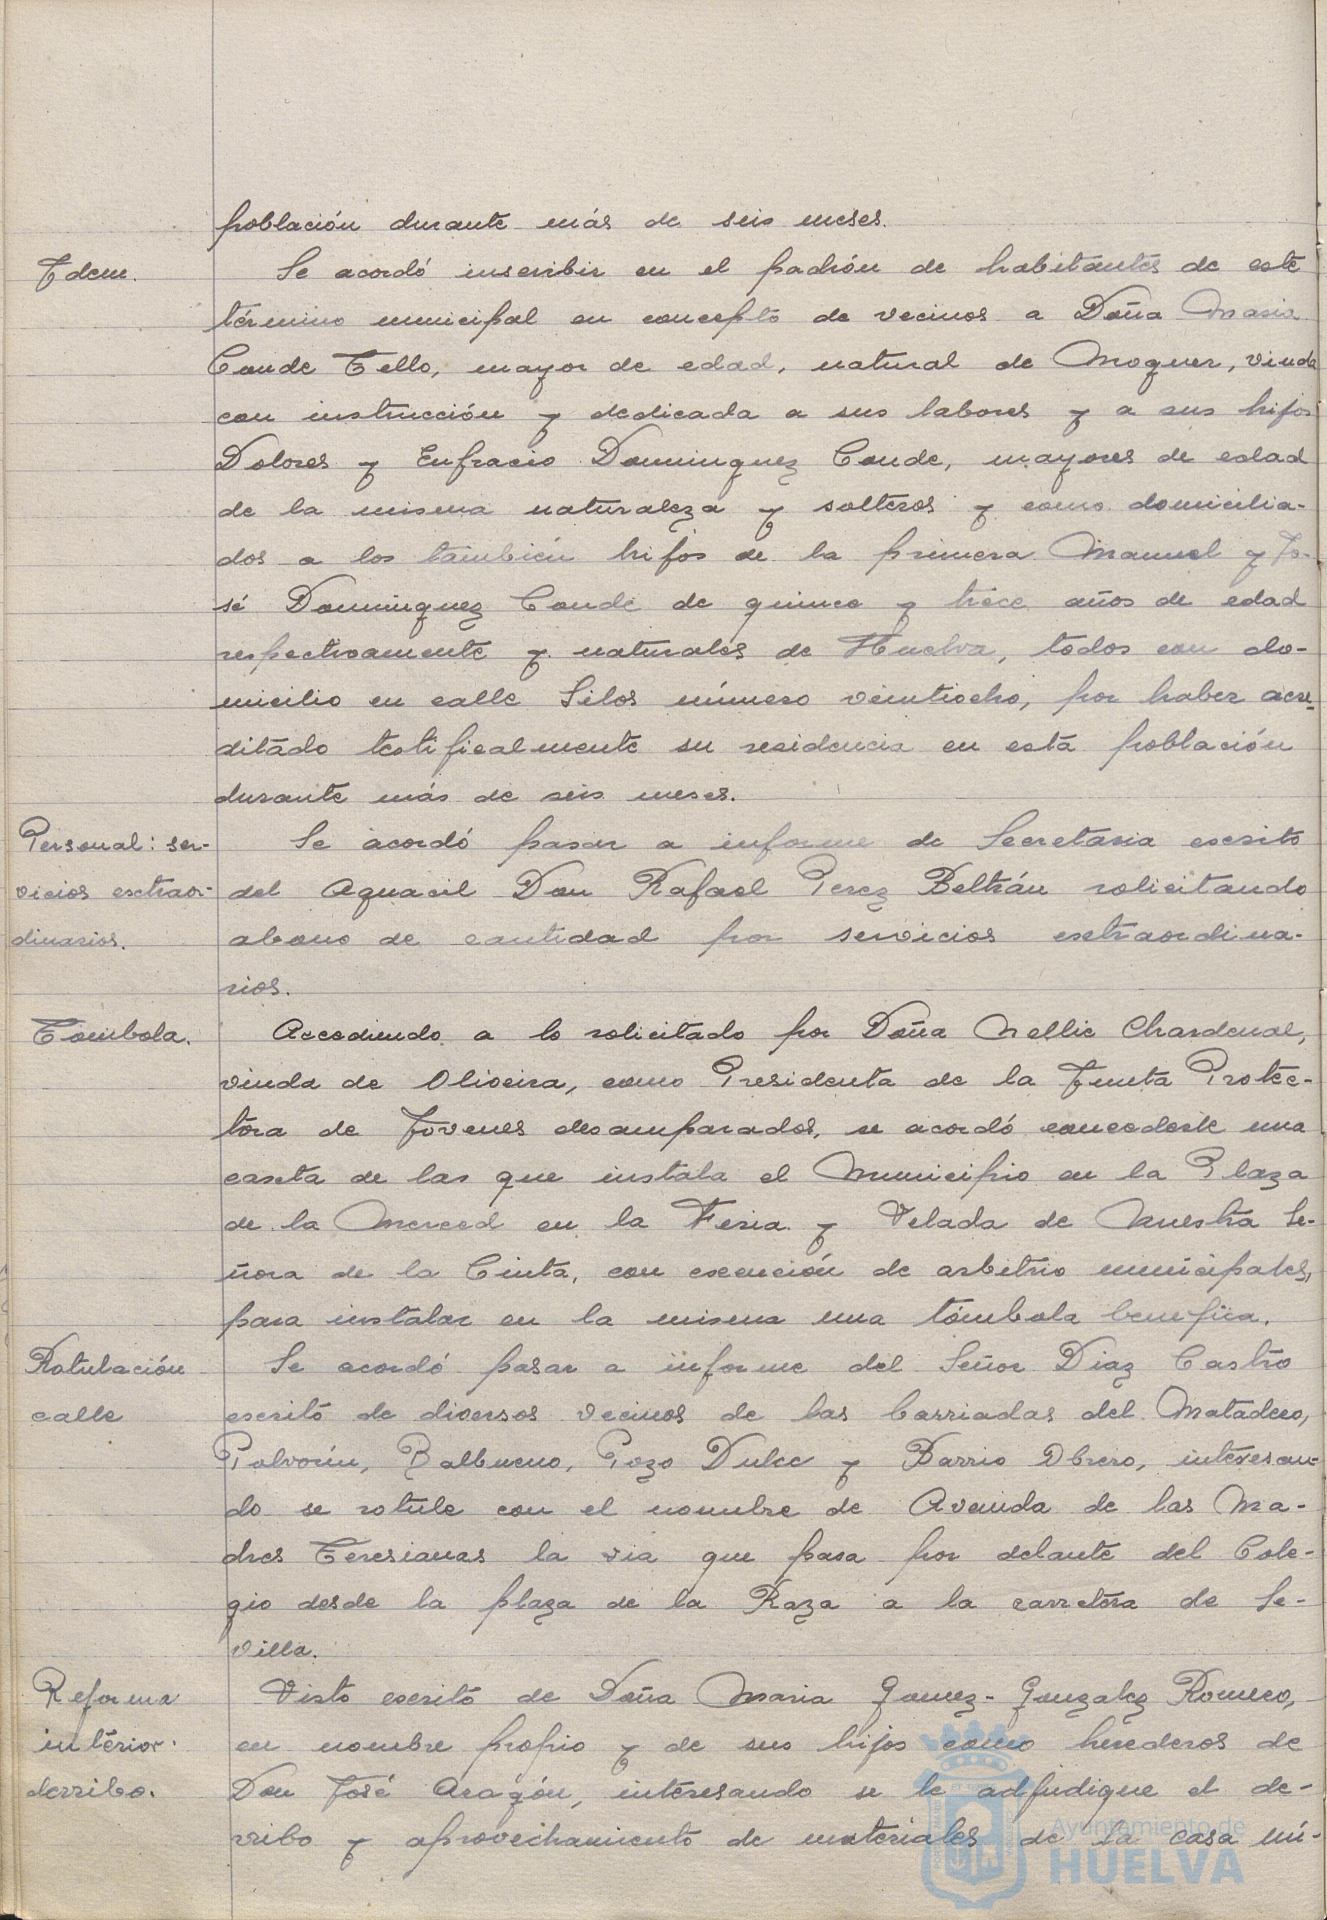 población durante más de seis meses.
Idem.
Se acordó inscribir en el padrón de habitantes de este
término municipal en concepto de vecinos a Doña Maria
Conde Tello, mayor de edad, natural de Moguer, viuda
con instrucción y dedicada a sus labores y a sus hijos
Dolores y Eufracio Dominguez Conde, mayores de edad
de la misma naturaleza y solteros y como domicilia-
dos a los también hijos de la primera Manuel y Jo-
sé Dominguez Conde de quince y trece años de edad
respectivamente y naturales de Huelva, todos con do-
micilio en calle Silos número veintiocho, por haber acre-
ditado testificalmente su residencia en esta población
durante más de seis meses.
Personal: ser-
vicios extraor-
dinarios.
Se acordó pasar a informe de Secretaria escrito
del Aguacil Don Rafael Perez Beltrán solicitando
abono de cantidad por servicios extraordina-
rios.
Tómbola.
Accediendo a lo solicitado por Doña Nellie Chardenal,
viuda de Oliveira, como Presidenta de la Junta Protec-
tora de Jóvenes desamparados, se acordó concederle una
caseta de las que instala el Municipio en la Plaza
de la Merced en la Feria y Velada de Nuestra Se-
ñora de la Cinta, con exención de arbitrio municipales,
para instalar en la misma una tómbola benefica.
Rotulación
calle
Se acordó pasar a informe del Señor Diaz Castro
escrito de diversos vecinos de las barriadas del Matadero,
Polvorín, Balbueno, Pozo Dulce y Barrio Obrero, interesan-
do se rotule con el nombre de Avenida de las Ma-
dres Teresianas la via que pasa por delante del Cole-
gio desde la plaza de la Raza a la carretera de Se-
villa.
Reforma
interior:
derribo.
Visto escrito de Doña Maria Gomez-Gonzalez Romero,
en nombre propio y de sus hijos como herederos de
Don José Aragón, interesando se le adjudique el de-
rribo y aprovechamiento de materiales de la casa nú-
Ayuntamiento de
HUELVA